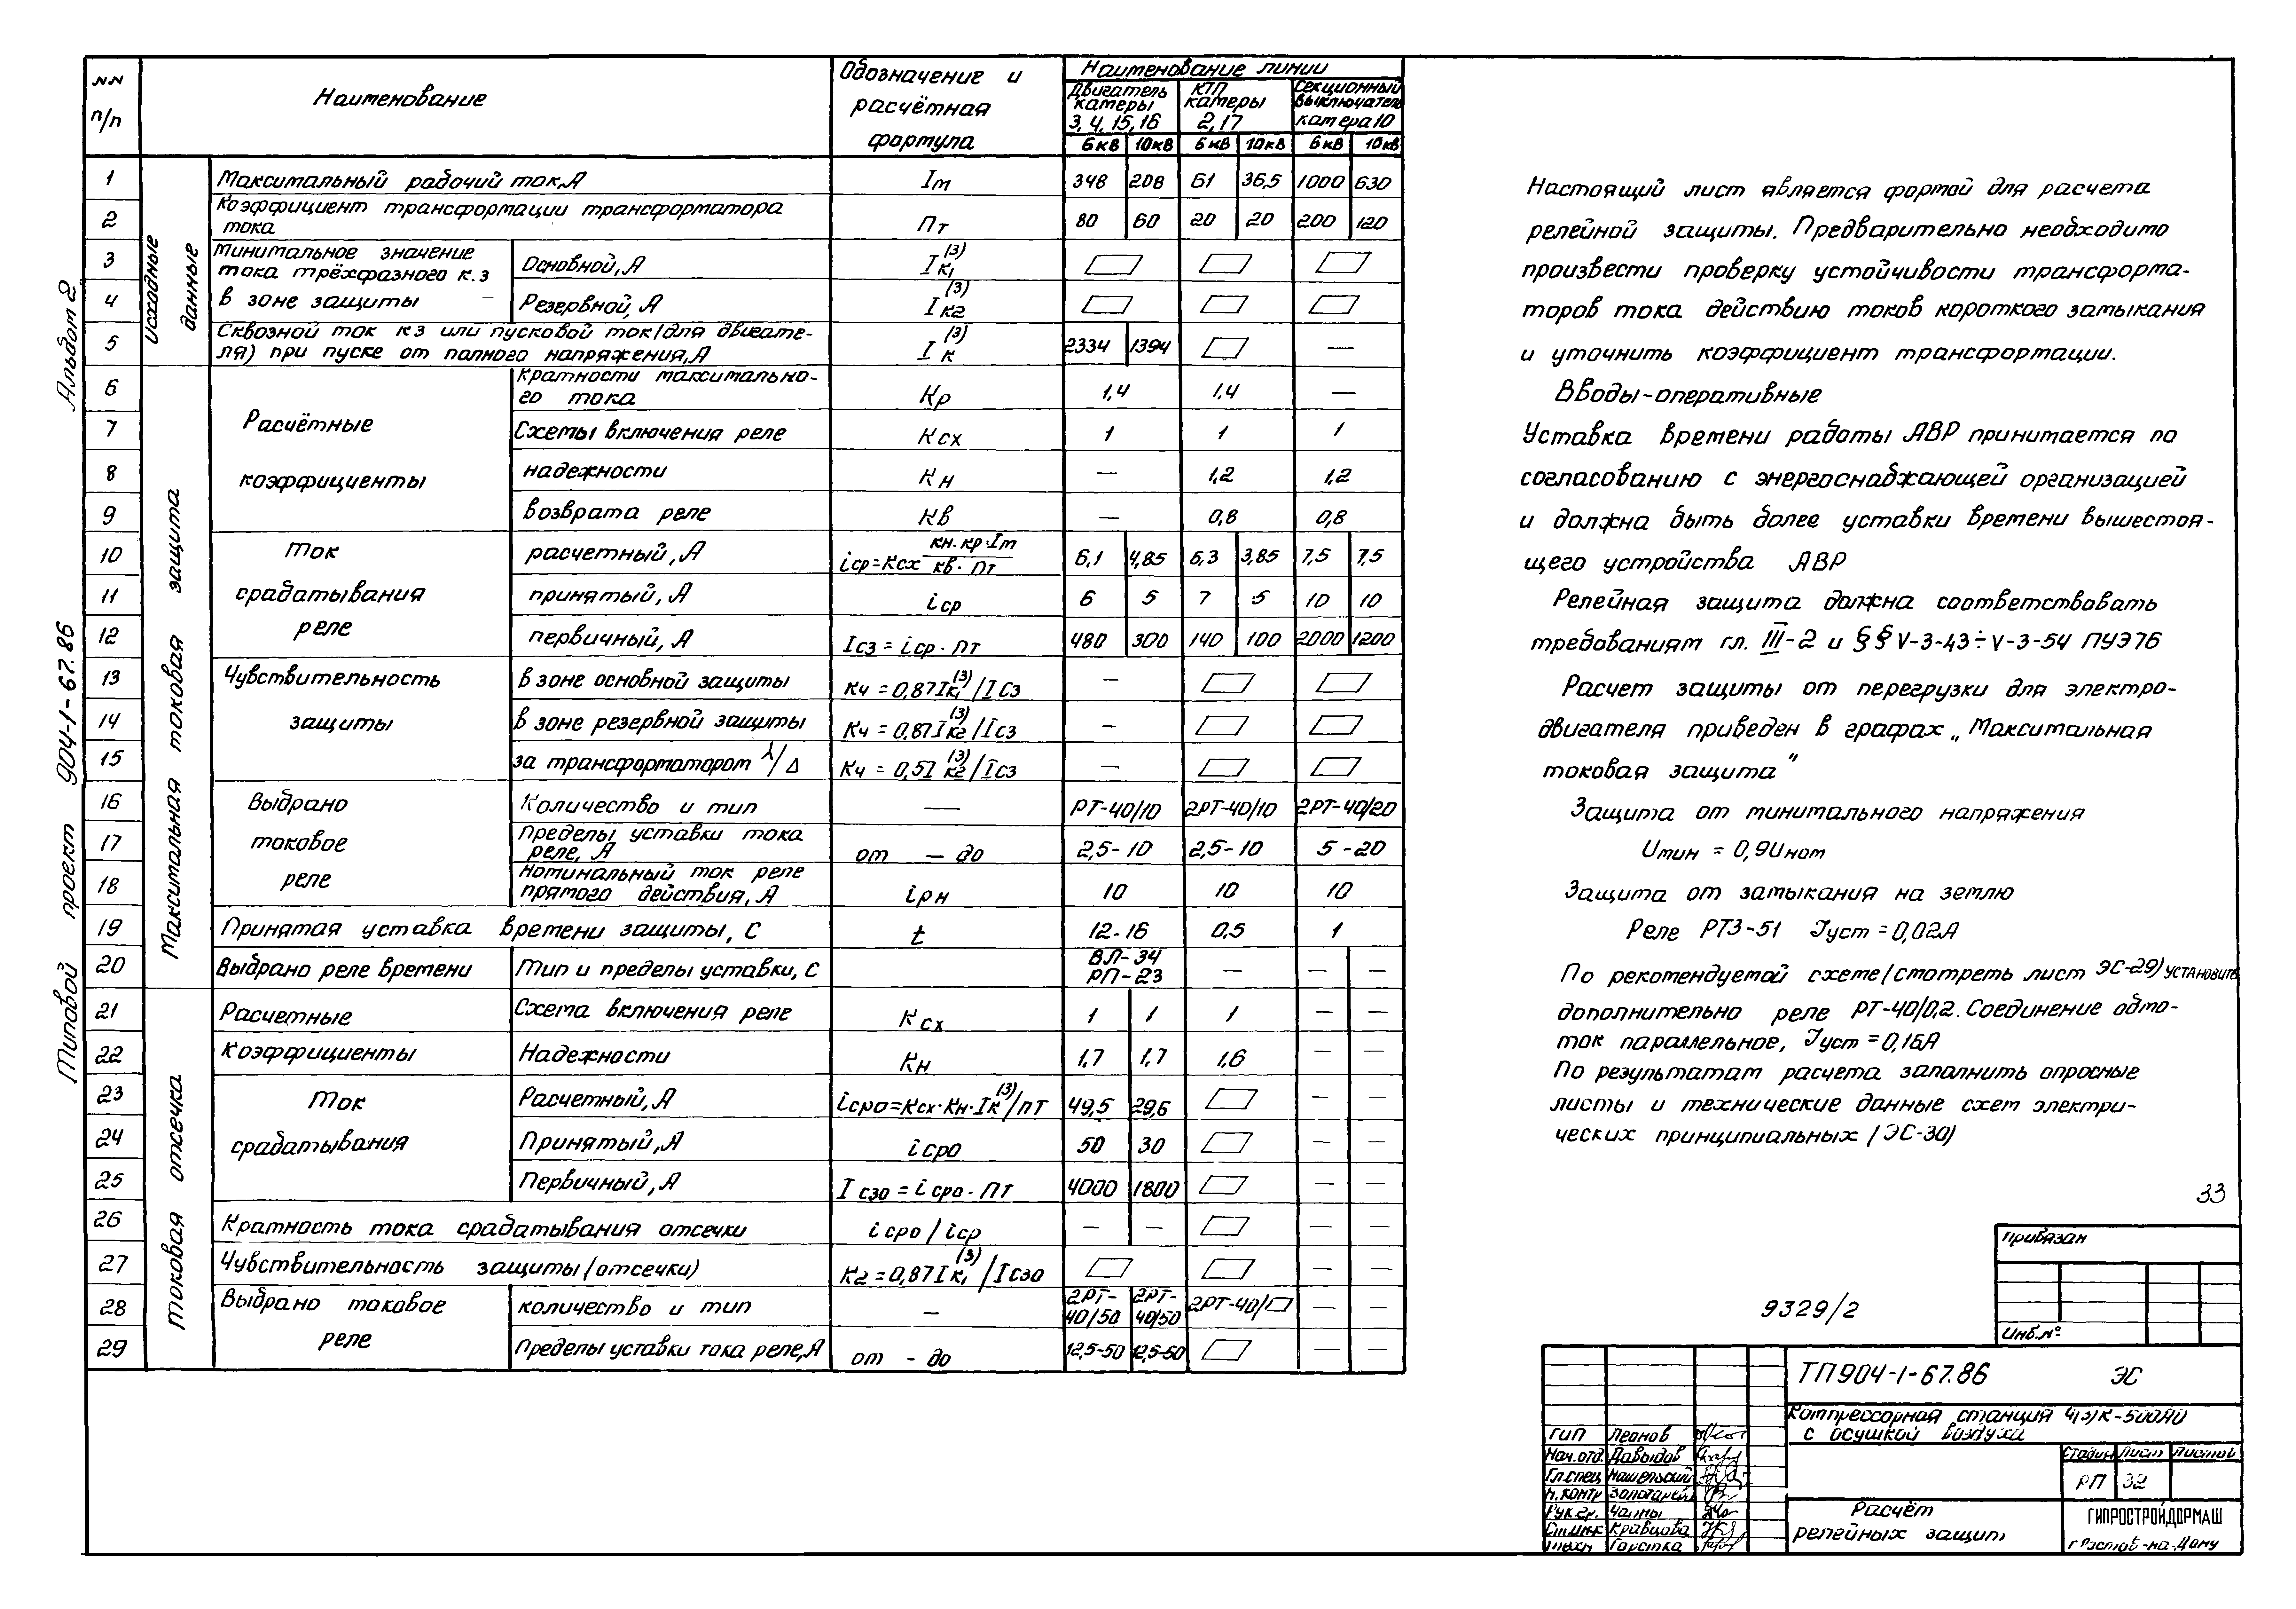 Альбом 2
Типовой проект 904-1-67.86
NN п/п
Наименование
Обозначение и расчётная формула
Наименование линии
Двигатель камеры 3, 4, 15, 16
КТП камеры 2, 17
Секционный выключатель камера 10
6 кв 10 кв 6 кв 10 кв 6 кв 10 кв
Исходные данные
1 Максимальный рабочий ток, А Iм 348 208 61 36,5 1000 630
2 Коэффициент трансформации трансформатора тока Пт 80 60 20 20 200 120
Минимальное значение тока трёхфазного к.з в зоне защиты
3 Основной, А Iк1(3)
4 Резервной, А Iк2(3)
5 Сквозной ток к з или пусковой ток (для двигате-
ля) при пуске от полного напряжения, А Iк(3) 2334 1394 —
Максимальная токовая защита
Расчётные коэффициенты
6 Кратности максимально-
го тока Кр 1,4 1,4 —
7 Схемы включения реле Ксх 1 1 1
8 надежности Кн — 1,2 1,2
9 возврата реле Кв — 0,8 0,8
Ток срабатывания реле
10 расчетный, А iср=Ксх кн.кр·Iм / кв·пт 6,1 4,85 6,3 3,85 7,5 7,5
11 принятый, А iср 6 5 7 5 10 10
12 первичный, А Iсз = iср · пт 480 300 140 100 2000 1200
Чувствительность защиты
13 в зоне основной защиты Кч = 0,87Iк1(3)/Iсз —
14 в зоне резервной защиты Кч = 0,87Iк2(3)/Iсз —
15 за трансформатором ⅄/Δ Кч = 0,5I к2(3)/Iсз —
Выбрано токовое реле
16 Количество и тип — РТ-40/10 2РТ-40/10 2РТ-40/20
17 Пределы уставки тока реле, А от — до 2,5-10 2,5-10 5-20
18 Номинальный ток реле прямого действия, А iрн 10 10 10
19 Принятая уставка времени защиты, с t 12-16 0,5 1
20 Выбрано реле времени Тип и пределы уставки, с ВЛ-34 РП-23 — — —
Токовая отсечка
Расчетные Коэффициенты
21 Схема включения реле Ксх 1 1 1 — —
22 Надежности Кн 1,7 1,7 1,6 — —
Ток срабатывания
23 Расчетный, А iсро=Ксх·Кн·Iк(3)/пт 49,5 29,6 — —
24 Принятый, А iсро 50 30 — —
25 Первичный, А Iсзо = iсро · Пт 4000 1800 — —
26 Кратность тока срабатывания отсечки iсро / iср — — — —
27 Чувствительность защиты (отсечки) К2=0,87Iк1(3)/Iсзо — —
Выбрано токовое реле
28 количество и тип — 2РТ-40/50 2РТ-40/50 2РТ-40/ — —
29 Пределы уставки тока реле, А от - до 12,5-50 12,5-50 — —
Настоящий лист является формой для расчета
релейной защиты. Предварительно необходимо
произвести проверку устойчивости трансформа-
торов тока действию токов короткого замыкания
и уточнить коэффициент трансформации.
Вводы-оперативные
Уставка времени работы АВР принимается по
согласованию с энергоснабжающей организацией
и должна быть более уставки времени вышестоя-
щего устройства АВР
Релейная защита должна соответствовать
требованиям гл. III-2 и §§ V-3-43÷V-3-54 ПУЭ76
Расчет защиты от перегрузки для электро-
двигателя приведен в графах „Максимальная
токовая защита"
Защита от минимального напряжения
Uмин = 0,9Uном
Защита от замыкания на землю
Реле РТЗ-51 Iуст = 0,02А
По рекомендуемой схеме (смотреть лист ЭС-29) установить
дополнительно реле РТ-40/0,2. Соединение обмо-
ток параллельное, Iуст = 0,16А
По результатам расчета заполнить опросные
листы и технические данные схем электри-
ческих принципиальных (ЭС-30)
33
Привязан
Инв.№
9329/2
ТП904-1-67.86 ЭС
Компрессорная станция 4(3)К-500АО
с осушкой воздуха
Стадия Лист Листов
РП 32
Расчёт
релейных защит
ГИПРОСТРОЙДОРМАШ
г Ростов-на-Дону
ГИП Леонов
Нач.отд. Давыдов
Гл.спец Машельский
Н.контр Золотарев
Рук.гр.
Ст.инж Кравцова